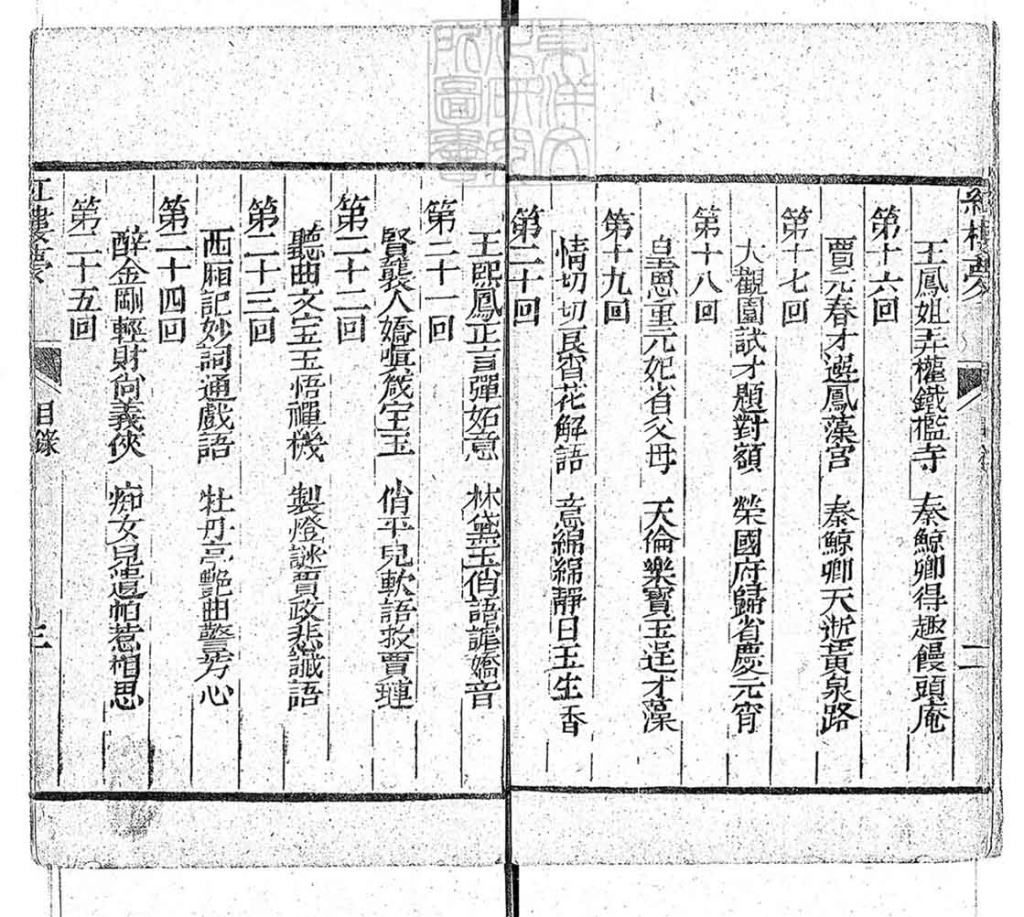 東洋文化研究所圖書
紅樓夢 二
王鳳姐弄權鐵檻寺 秦鯨卿得趣饅頭庵
第十六回
賈元春才選鳳藻宮 秦鯨卿夭逝黃泉路
第十七回
大觀園試才題對額 榮國府歸省慶元宵
第十八回
皇恩重元妃省父母 天倫樂寶玉逞才藻
第十九回
情切切良宵花解語 意綿綿靜日玉生香
第二十回
王熙鳳正言彈妬意 林黛玉俏語謔嬌音
第二十一回
賢襲人嬌嗔箴宝玉 俏平兒軟語救賈璉
第二十二回
聽曲文宝玉悟禪機 製燈謎賈政悲讖語
第二十三回
西廂記妙詞通戲語 牡丹亭艷曲警芳心
第二十四回
醉金剛輕財尙義俠 痴女兒遺帕惹相思
第二十五回
紅樓夢 目錄 三